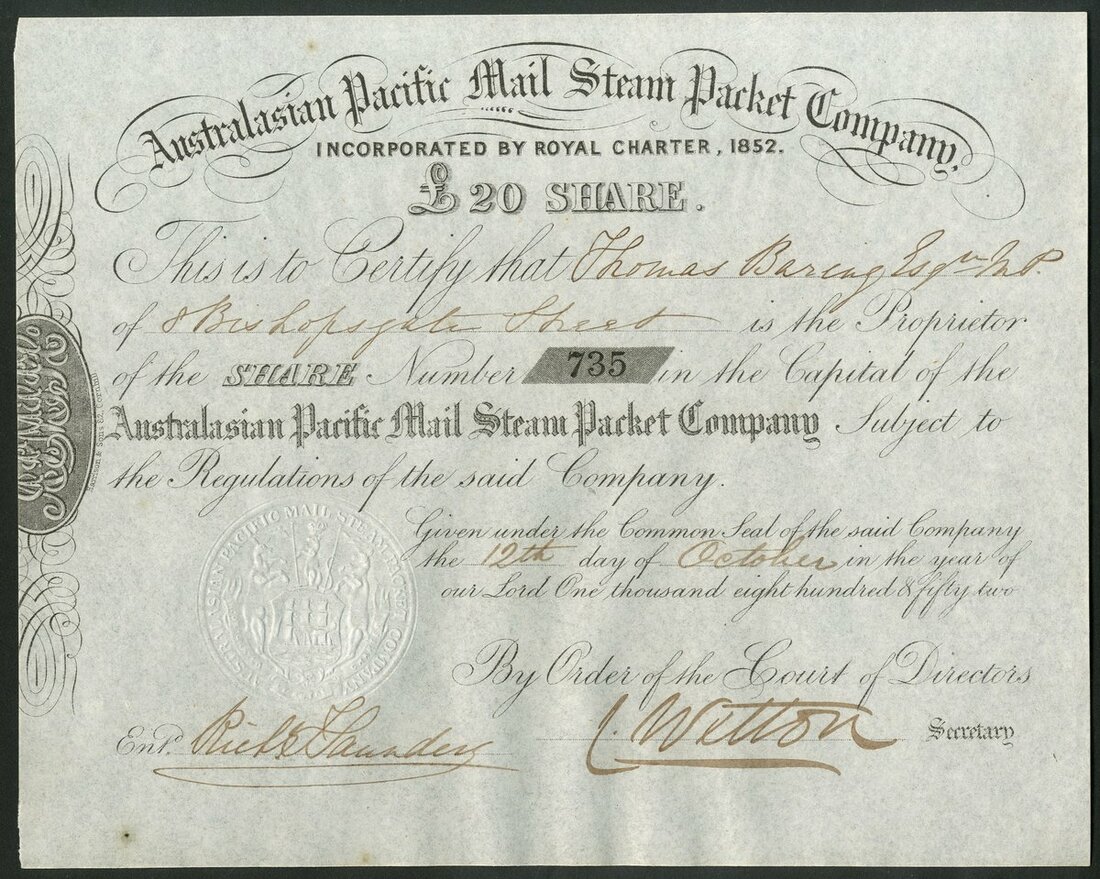 Australasian Pacific Mail Steam Packet Company,
INCORPORATED BY ROYAL CHARTER, 1852.
£20 SHARE.
This is to Certify that Thomas Baring Esqre M.P.
of 8 Bishopsgate Street is the Proprietor
of the SHARE Number 735 in the Capital of the
Australasian Pacific Mail Steam Packet Company Subject to
the Regulations of the said Company.
Given under the Common Seal of the said Company
the 12th day of October in the year of
our Lord One thousand eight hundred & fifty two
By Order of the Court of Directors
Entd. Richd Saunders J. Wetton Secretary
AUSTRALASIAN PACIFIC MAIL STEAM PACKET COMPANY